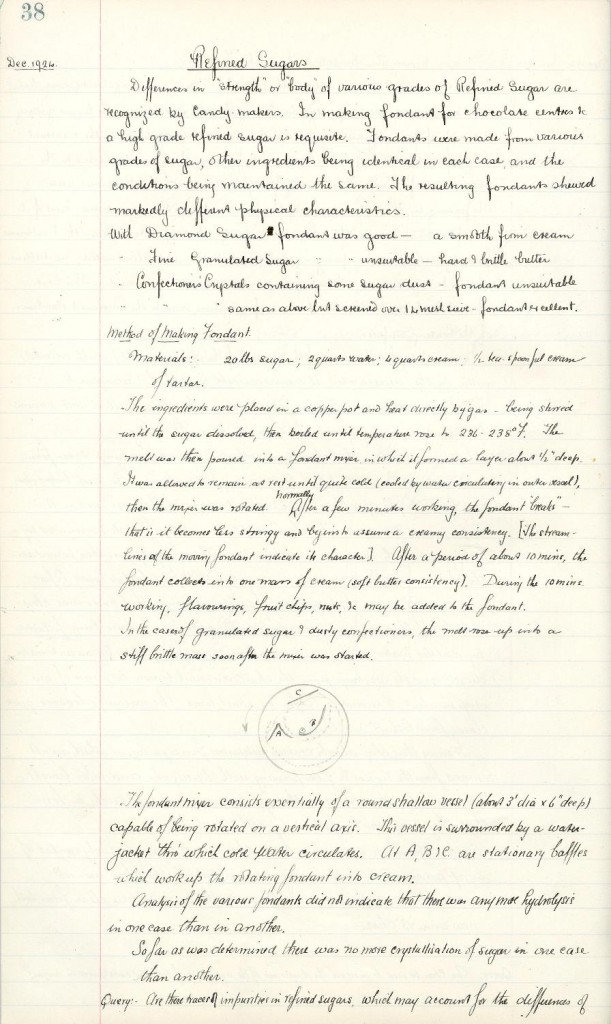 38
Dec. 1924. Refined Sugars
Differences in "strength" or "body" of various grades of Refined Sugar are
recognized by Candy-makers. In making fondant for chocolate centres &c
a high grade refined sugar is requisite. Fondants were made from various
grades of sugar, other ingredients being identical in each case, and the
conditions being maintained the same. The resulting fondants shewed
markedly different physical characteristics.
With Diamond Sugar fondant was good — a smooth firm cream
" Fine Granulated Sugar " " unsuitable — hard & brittle butter
" Confectioners Crystals containing some sugar dust — fondant unsuitable
" " same as above but screened over 14 mesh sieve - fondant excellent.
Method of Making Fondant.
Materials:- 20 lbs sugar; 2 quarts water; 4 quarts cream; ½ tea-spoonful cream
of tartar.
The ingredients were placed in a copper pot and heat directly by gas - being stirred
until the sugar dissolved, then boiled until temperature rose to 236-238°F. The
melt was then poured into a fondant mixer in which it formed a layer about ½" deep.
It was allowed to remain at rest until quite cold (cooled by water circulating in outer vessel),
then the mixer was rotated. normally After a few minutes working, the fondant "breaks" -
that is it becomes less stringy and begins to assume a creamy consistency. [The stream-
lines of the moving fondant indicate its character]. After a period of about 10 mins, the
fondant collects into one mass of cream (soft butter consistency). During the 10 mins.
working, flavourings, fruit chips, nuts, &c may be added to the fondant.
In the case of granulated sugar & dusty confectioners, the melt rose up into a
stiff brittle mass soon after the mixer was started.
C
A B
The fondant mixer consists essentially of a round shallow vessel (about 3' dia x 6" deep)
capable of being rotated on a vertical axis. This vessel is surrounded by a water-
jacket thro' which cold water circulates. At A, B & C. are stationary baffles
which work up the rotating fondant into cream.
Analysis of the various fondants did not indicate that there was any more hydrolysis
in one case than in another.
So far as was determined there was no more crystallisation of sugar in one case
than another.
Query:- Are there traces of impurities in refined sugars, which may account for the differences of